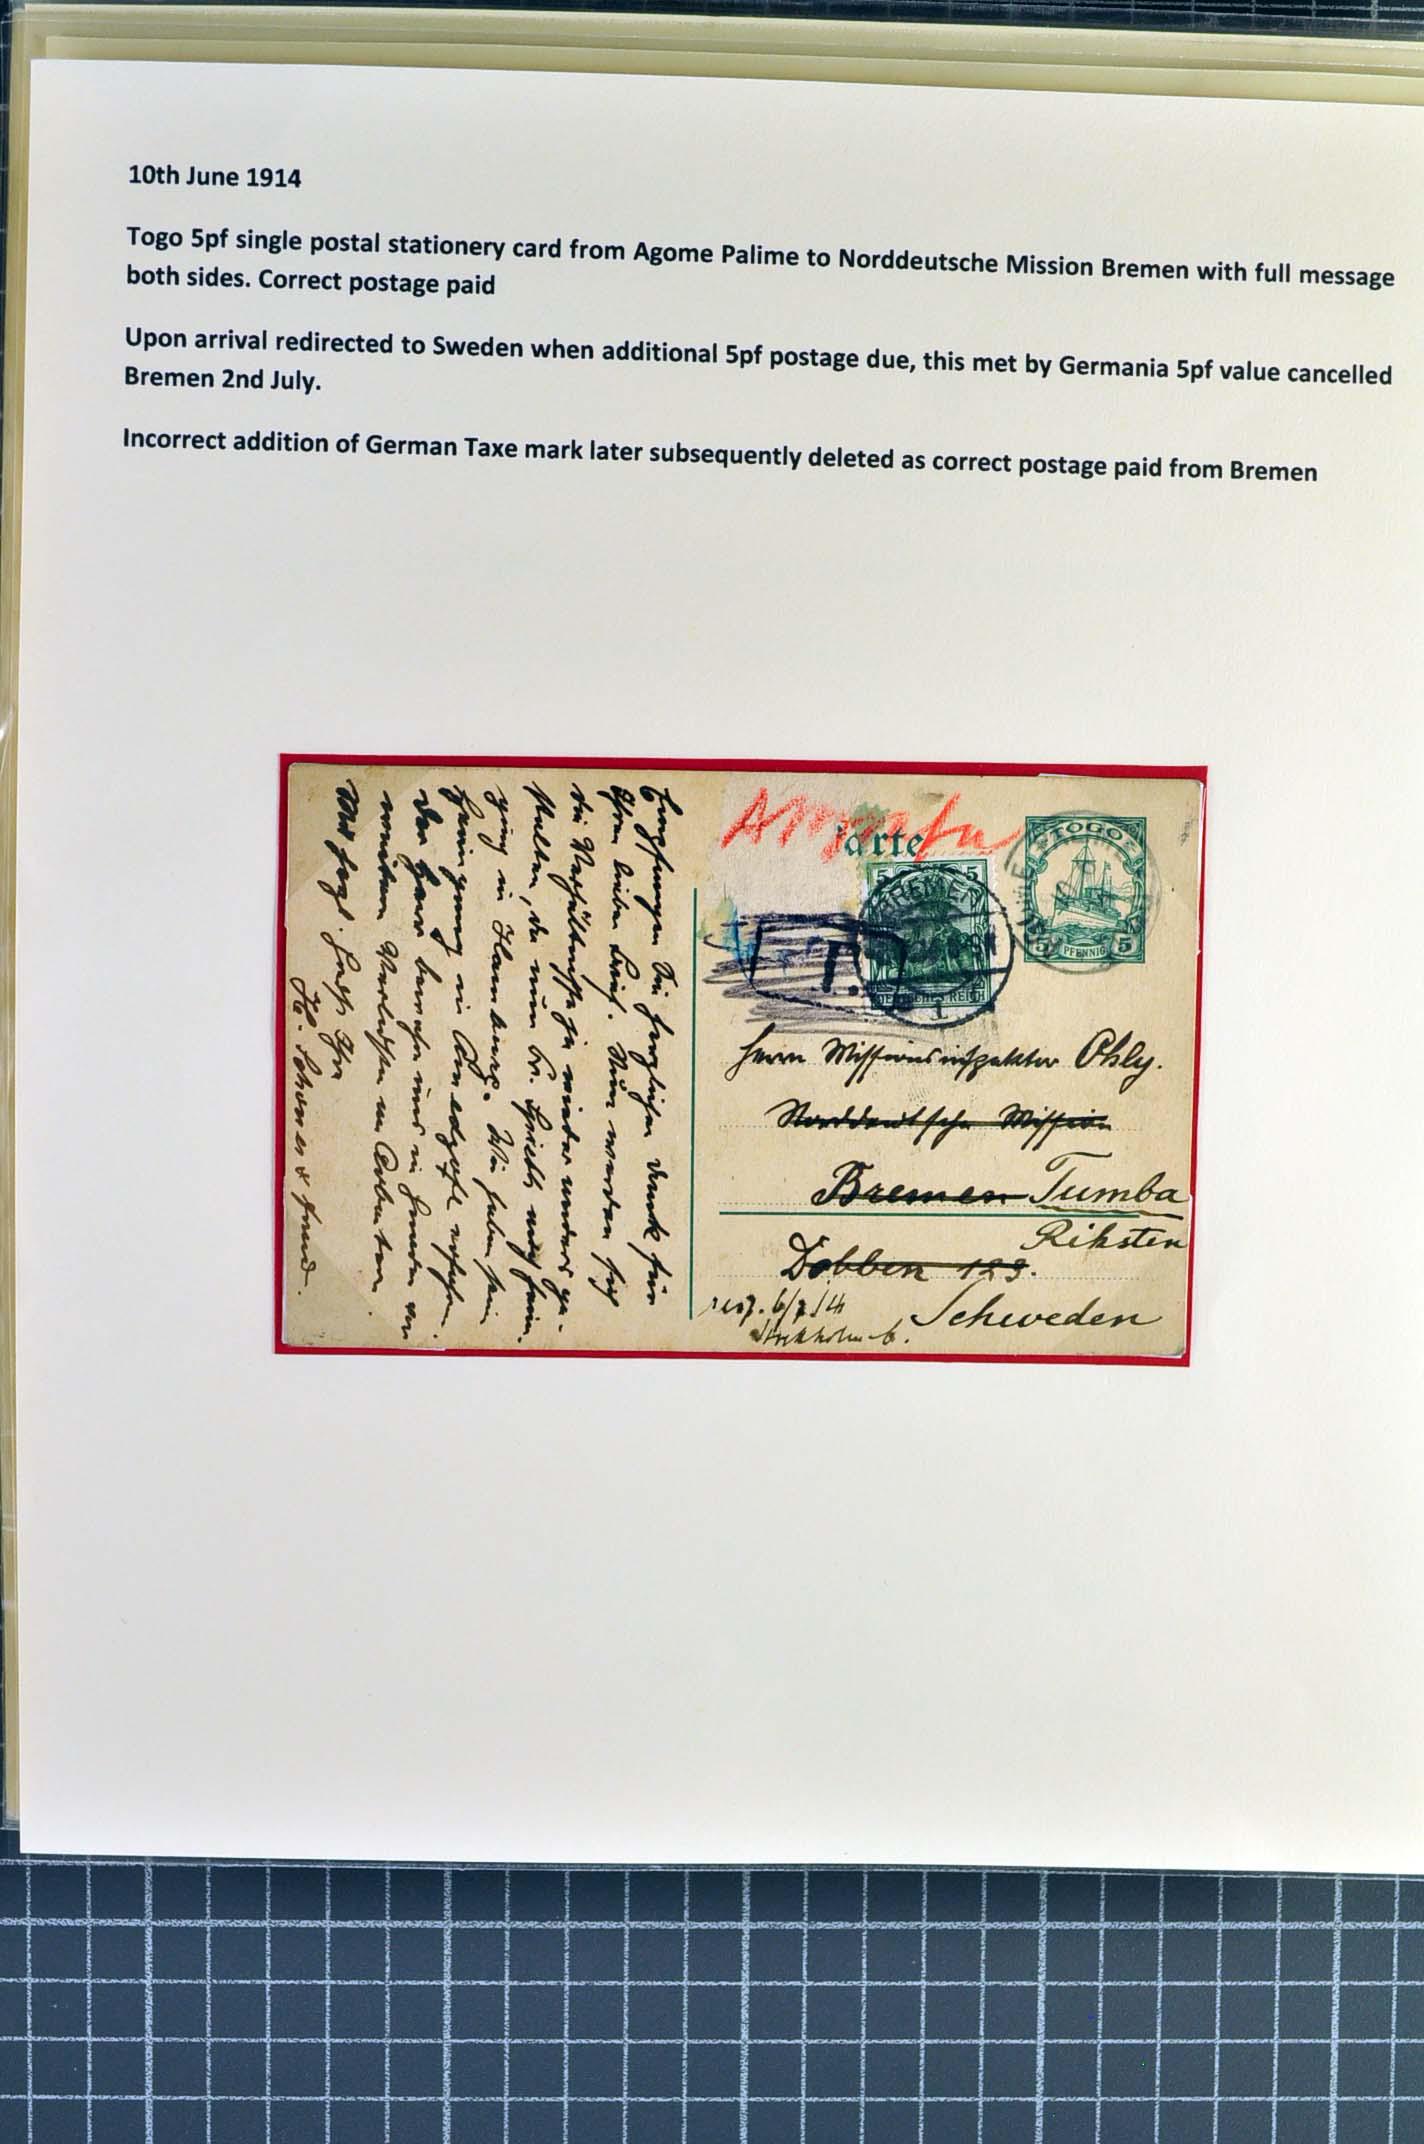 10th June 1914
Togo 5pf single postal stationery card from Agome Palime to Norddeutsche Mission Bremen with full message
both sides. Correct postage paid
Upon arrival redirected to Sweden when additional 5pf postage due, this met by Germania 5pf value cancelled
Bremen 2nd July.
Incorrect addition of German Taxe mark later subsequently deleted as correct postage paid from Bremen
arte
TOGO
5 PFENNIG 5
5 5
BREMEN
DEUTSCHES REICH
1
T.
Herrn Missionsinspektor Ohly.
Norddeutsche Mission
Bremen Tumba
Riksten
Dobben 123.
Schweden
6/7 14
Stockholm 6.
Empfangen Sie herzlichen Dank für
Ihren lieben Brief. Nun werden sich
die Verhältnisse ja wieder anders ge-
stalten, da nun Br. heim.
ging in Hamburg. Wir haben sein
Heimgang in erfahren.
Der Herr bewahre uns in Gnaden vor
weiteren Verlusten an Arbeitern.
Mit herzl. Gruß Ihr